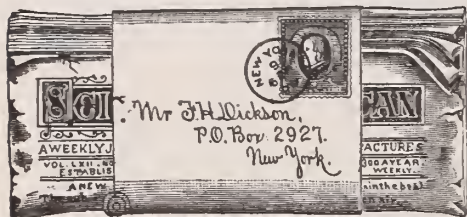 NEW YO
SCI
EAN
Mr F. H. Dickson,
P.O. Box 2927.
New York.
A WEEKLY J
ACTURES
VOL. LXII.-NO
ESTABLIS
.00 A YEAR.
WEEKLY.
A NEW
in the beal